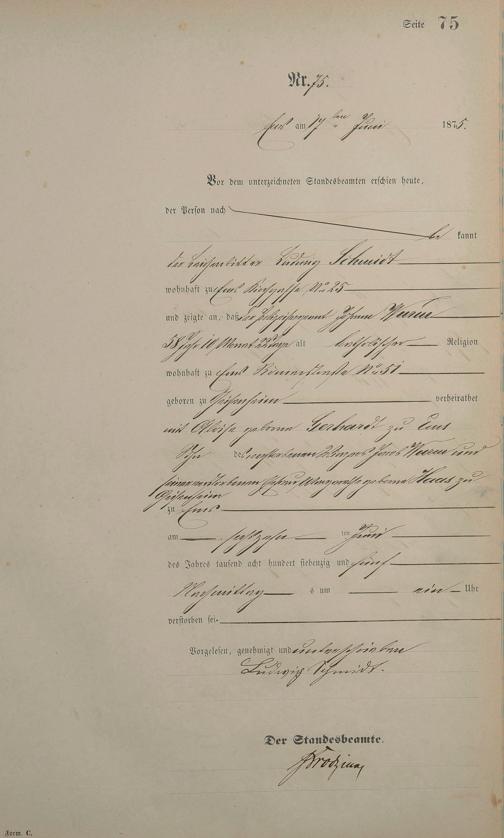 Seite 75
Nr. 75.
Ems am 17ten Juni 1875.
Vor dem unterzeichneten Standesbeamten erschien heute,
der Person nach
be kannt
der Leichenbitter Ludwig Schmidt
wohnhaft zu Ems Kirchgasse No 25
und zeigte an, daß der Johann
58 Jahre 10 Monat alt katholischer Religion
wohnhaft zu Ems Römerstraße No 51
geboren zu Geisenheim verheirathet
mit geborene Gerhardt zu Ems
Sohn des verstorbenen und
seiner verstorbenen geborene Haas zu
Geisenheim
zu Ems
am sechszehn ten Juni
des Jahres tausend acht hundert siebenzig und fünf
Nachmittag s um ein Uhr
verstorben sei.
Vorgelesen, genehmigt und unterschrieben
Ludwig Schmidt.
Der Standesbeamte.
Form. C.